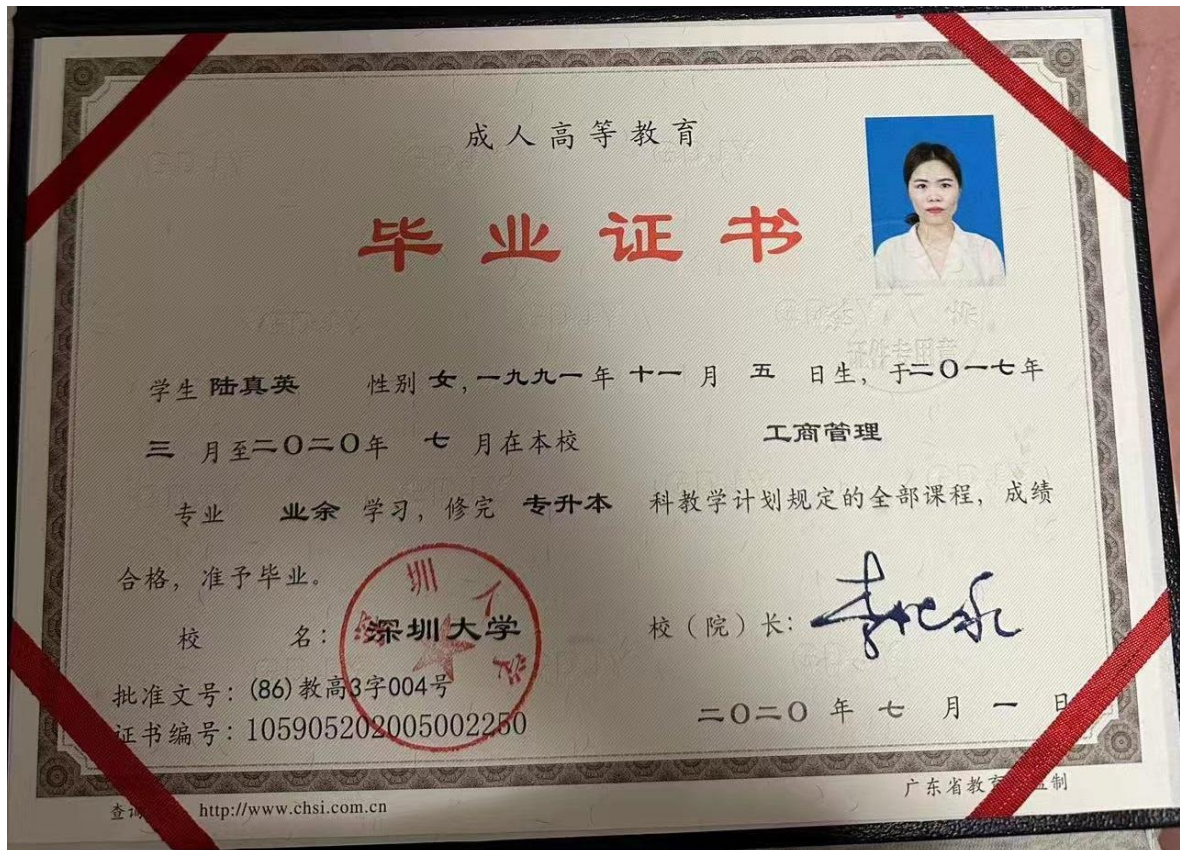 成人高等教育
毕业证书
学生 陆真英 性别 女，一九九一年 十一 月 五 日生，于二〇一七年
三 月至二〇二〇年 七 月在本校 工商管理
专业 业余 学习，修完 专升本 科教学计划规定的全部课程，成绩
合格，准予毕业。
校 名：深圳大学 校（院）长：
批准文号：(86)教高3字004号
证书编号：105905202005002250
二〇二〇 年 七 月 一 日
广东省教 制
查 http://www.chsi.com.cn
证件专用章